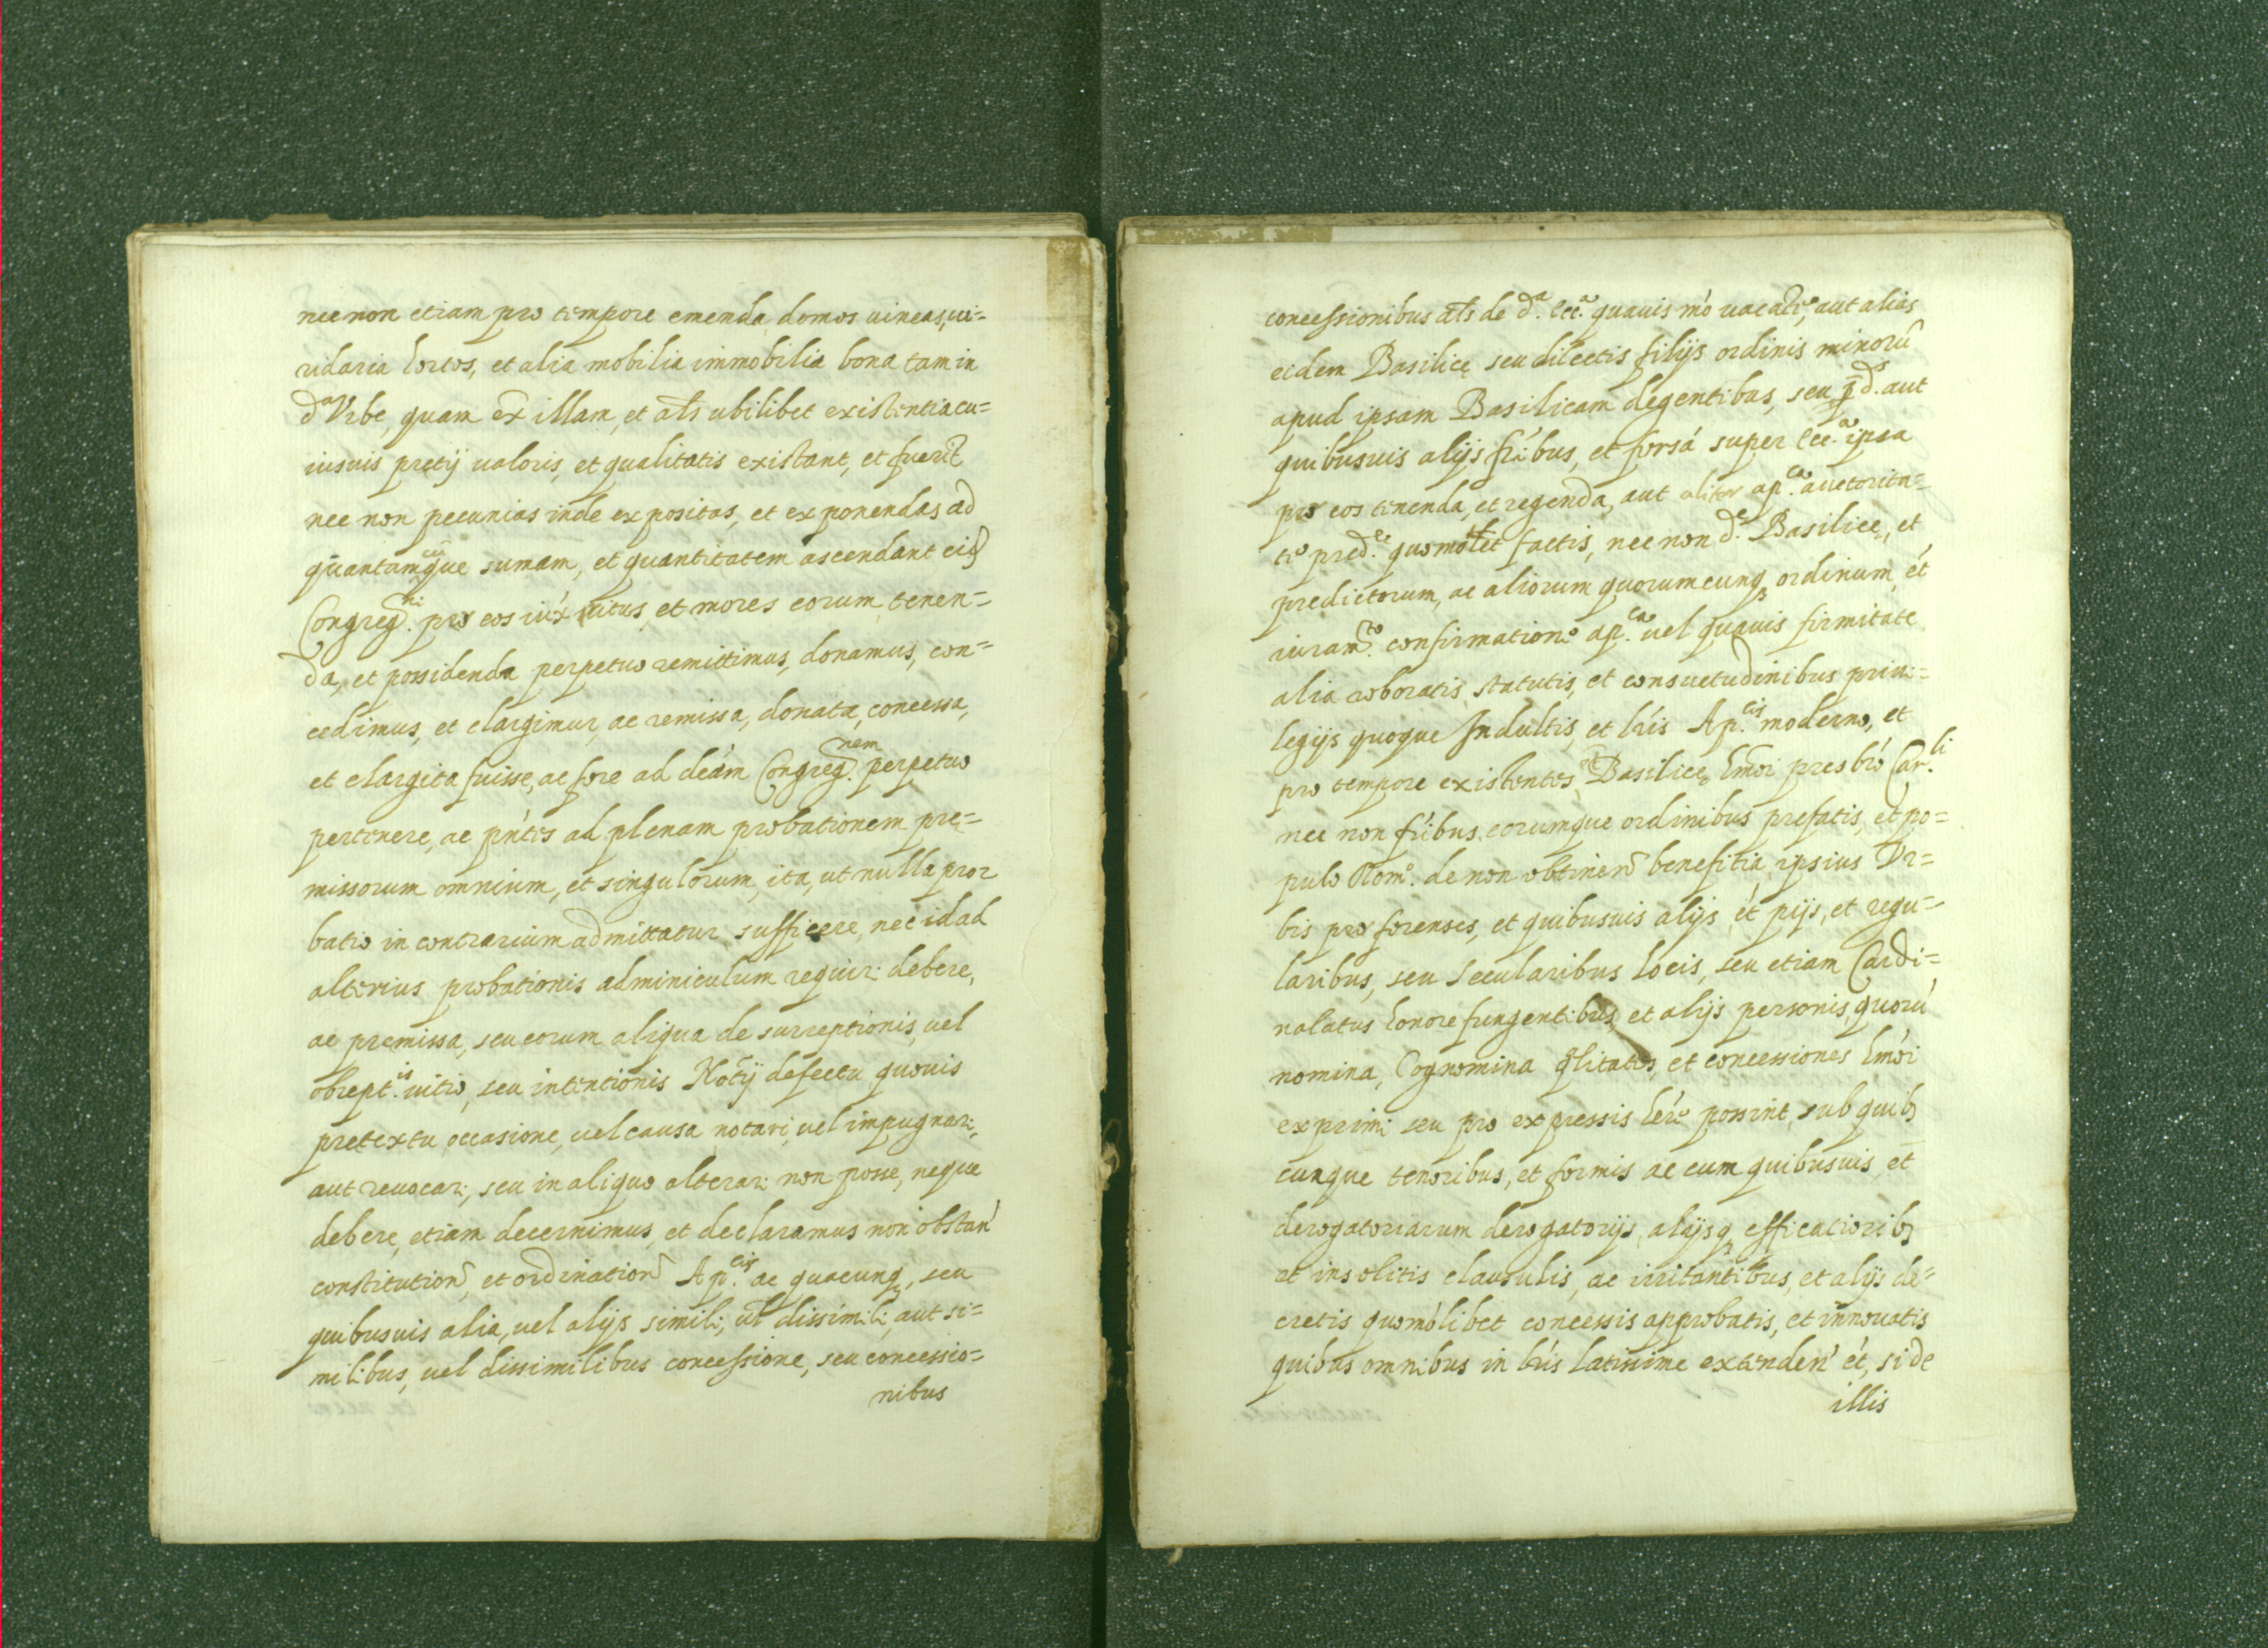 nec non etiam pro tempore emenda domos uineas, ui=
ridaria hortos, et alia mobilia immobilia bona tam in
d.ª Vrbe, quam ex̃ illam, et als̃ ubilibet existentia cu=
iusuis pretij ualoris, et qualitatis existant, et fuerit̃
nec non pecunias inde expositas, et exponendas ad
quantamcũque sumam, et quantitatem ascendant eid
Congreg.ni pro eos iux́ ritus, et mores eorum tenen=
da, et possidenda perpetuo remittimus, donamus, con=
cedimus, et elargimur, ac remissa, donata, concessa,
et elargita fuisse, ac fore ad dcám Congreg.nem perpetuo
pertinere, ac pńtes ad plenam probationem prę=
missorum omnium, et singulorum, ita, ut nulla pror
batio in contrarium admittatur sufficere, nec id ad
alterius probationis adminiculum requiri debere,
ac premissa, seu eorum aliqua de surreptionis, uel
obrept.is uitio, seu intentionis Nõtij defectu quouis
pretextu occasione, uel causa notari, uel impugnari,
aut reuocari, seu in aliquo alterari non posse, neque
debere, etiam decernimus, et declaramus non obstan'
constitution̄, et ordination̄ Ap.cis ac quacunq, seu
quibusuis alia, uel alijs simili, ul̃ dissimili, aut si=
milibus, uel dissimilibus concessione, seu concessio=
nibus
concessionibus als̃ de d.ª Ecc.ª quauis mo' uacan̄te, aut alias
eidem Basilicę seu dilectis filijs ordinis minorũ
apud ipsam Basilicam degentibus, seu p̄d.s aut
quibusuis alijs fŕibus, et forsá super Ecc.ª ipsa
pro eos tenenda, et regenda, aut aliter ap.ca auctorita=
te pred.e quomolt̃et factis, nec non d.e Basilicę, et
predictorum, ac aliorum quorumcunq ordinum, ét
iuram.to confirmatione ap.ca uel quauis firmitate
alia roboratis statutis, et consuetudinibus priui=
legijs quoque Indultis, et lŕis Ap.cis moderno, et
pro tempore existentes Basilicę hmõi presbŕo Car.li
nec non fŕibus eorumque ordinibus prefatis, et po=
pulo Rom.º de non obtinen̄ benefitia ipsius Vr=
bis pro forenses, et quibusuis alijs ét pijs, et regu=
laribus, seu Secularibus locis, seu etiam Cardi=
nalatus honore fungentibus, et alijs personis, quorú
nomina, Cognomina qlitates, et concessiones hmói
exprimi seu pro expressis héŕe possint, sub quib
cunque tenoribus, et formis ac cum quibusuis et̄
derogatoriarum derogatorijs, alijsq efficatiorib
at insolitis clausulis, ac irritantibus, et alijs de=
cretis quomólibet concessis approbatis, et innouatis
quibus omnibus in hŕis latissime extenden' ét, si de
illis